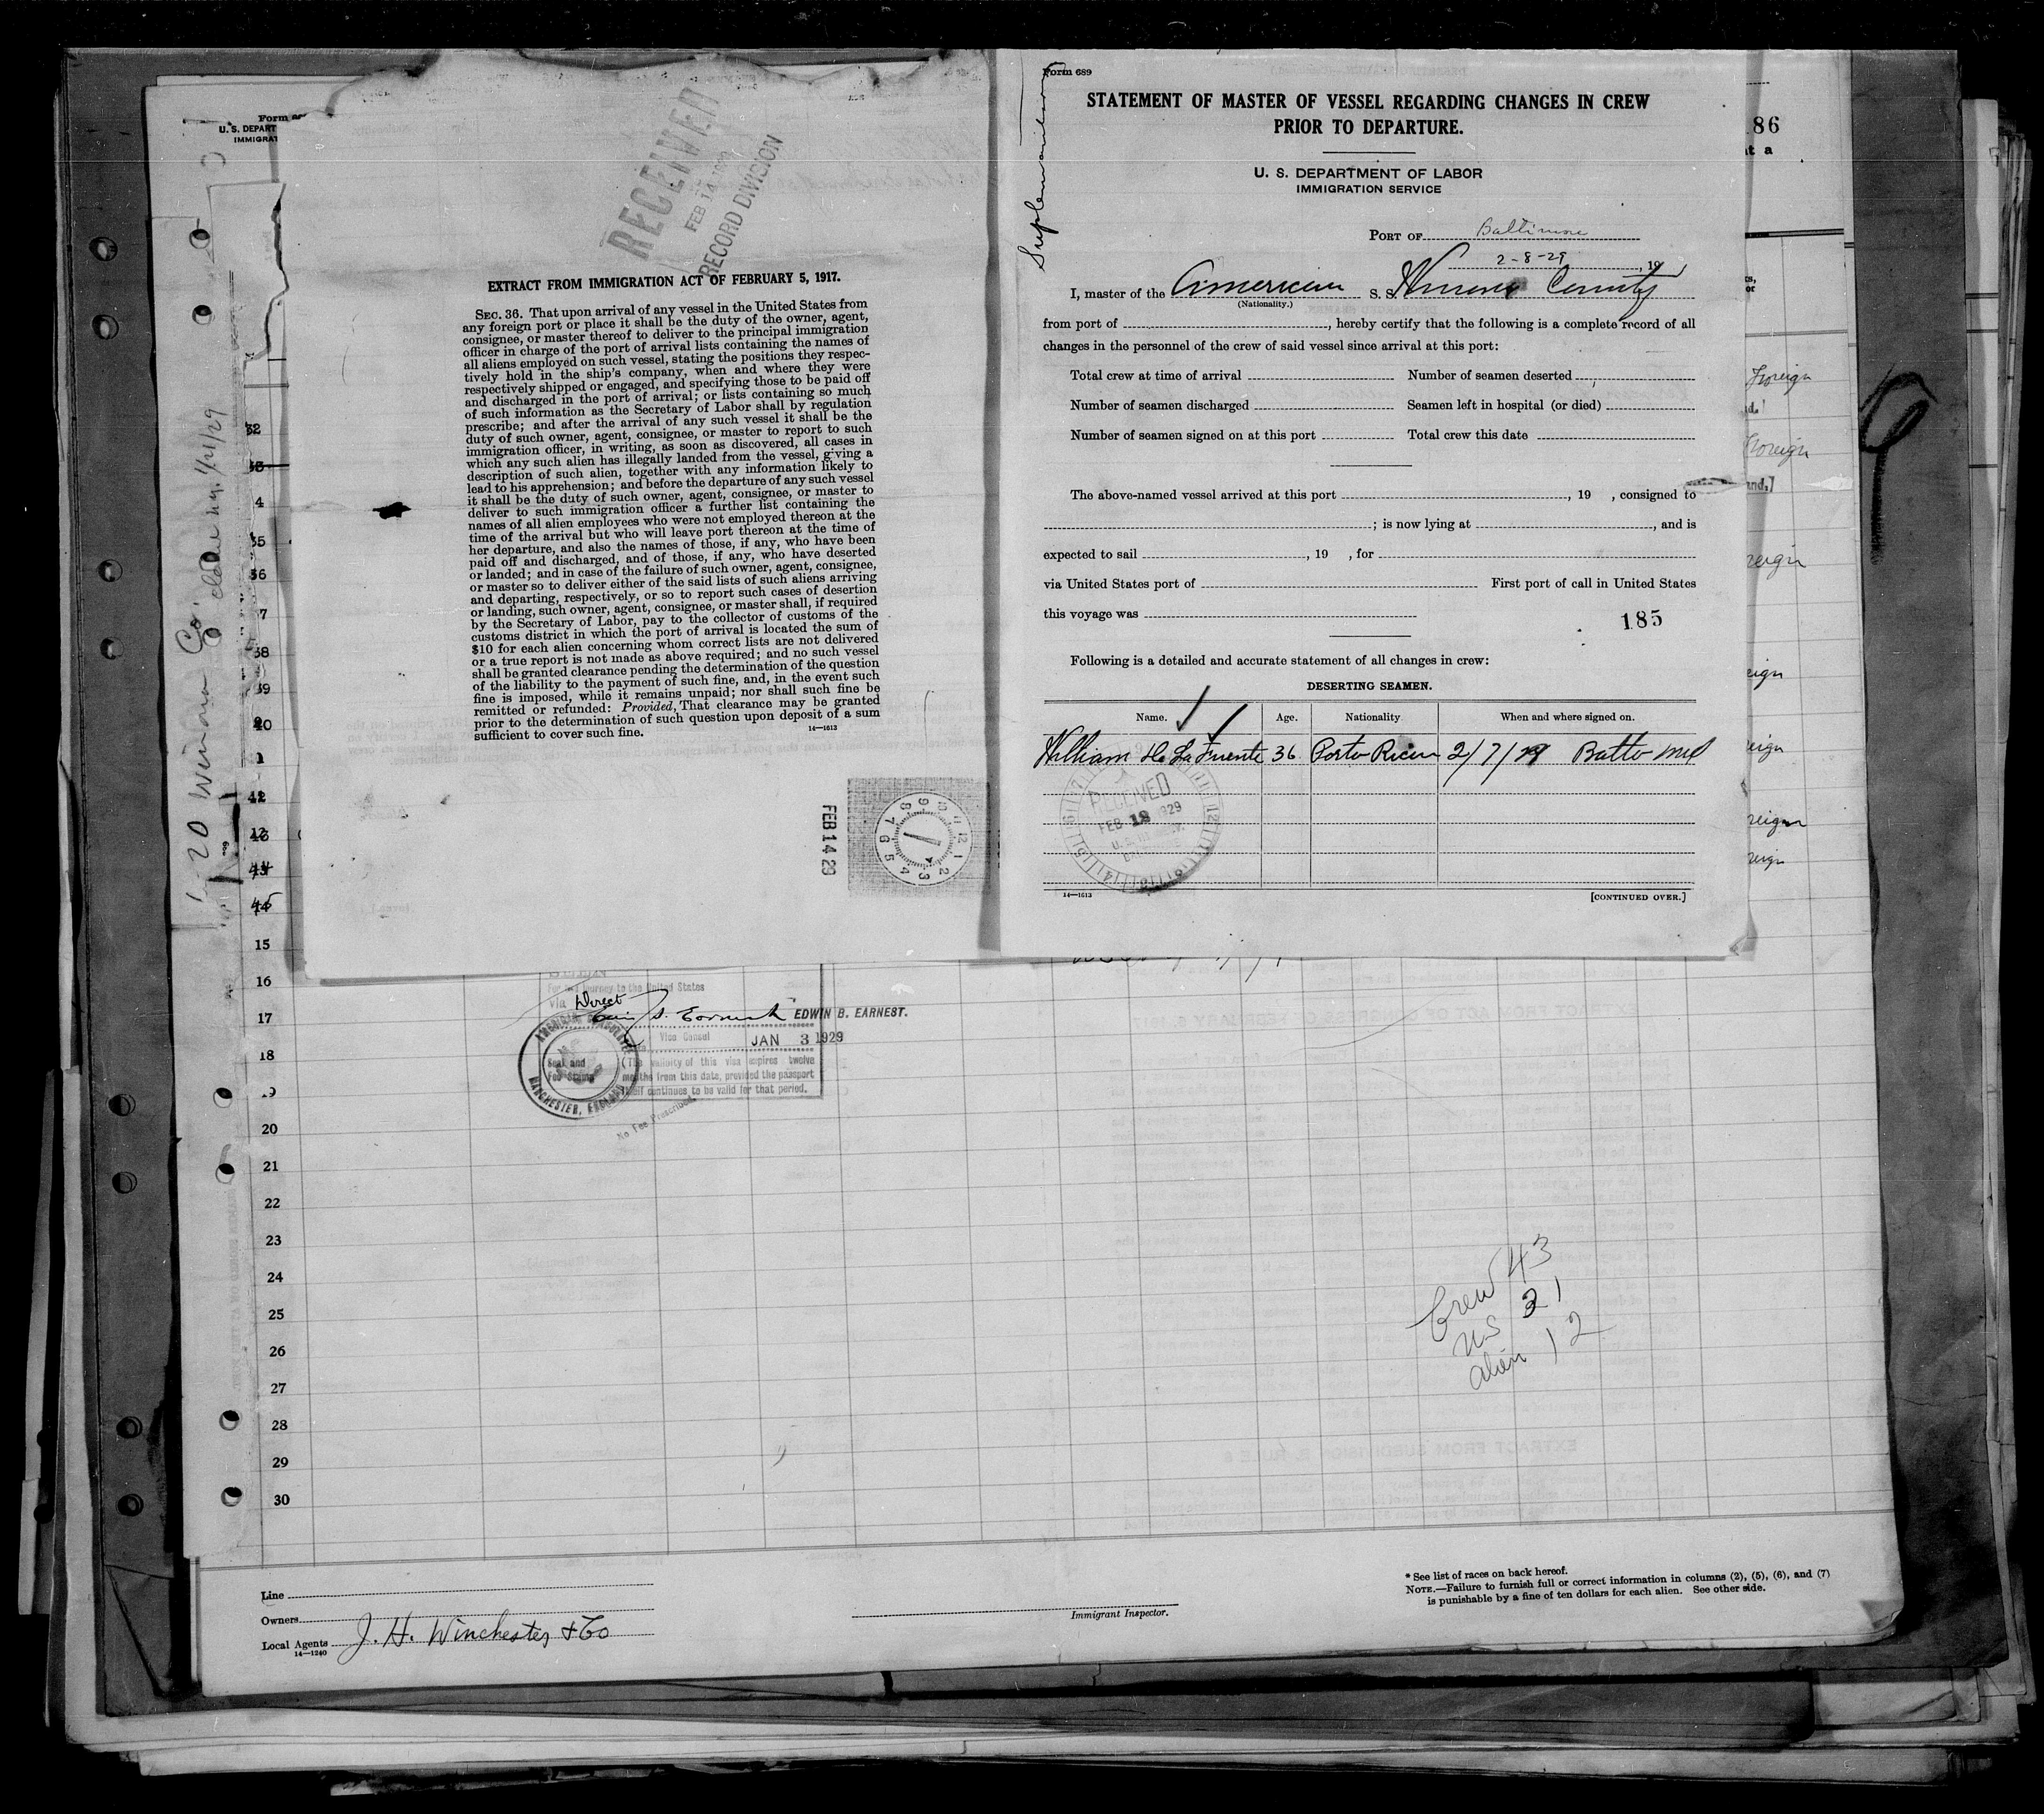 Form
U. S. DEPART
IMMIGRAT
RECEIVED
FEB 14
RECORD DIVISION
EXTRACT FROM IMMIGRATION ACT OF FEBRUARY 5, 1917.
SEC. 36. That upon arrival of any vessel in the United States from
any foreign port or place it shall be the duty of the owner, agent,
consignee, or master thereof to deliver to the principal immigration
officer in charge of the port of arrival lists containing the names of
all aliens employed on such vessel, stating the positions they respec-
tively hold in the ship's company, when and where they were
respectively shipped or engaged, and specifying those to be paid off
and discharged in the port of arrival; or lists containing so much
of such information as the Secretary of Labor shall by regulation
prescribe; and after the arrival of any such vessel it shall be the
duty of such owner, agent, consignee, or master to report to such
immigration officer, in writing, as soon as discovered, all cases in
which any such alien has illegally landed from the vessel, giving a
description of such alien, together with any information likely to
lead to his apprehension; and before the departure of any such vessel
it shall be the duty of such owner, agent, consignee, or master to
deliver to such immigration officer a further list containing the
names of all alien employees who were not employed thereon at the
time of the arrival but who will leave port thereon at the time of
her departure, and also the names of those, if any, who have been
paid off and discharged, and of those, if any, who have deserted
or landed; and in case of the failure of such owner, agent, consignee,
or master so to deliver either of the said lists of such aliens arriving
and departing, respectively, or so to report such cases of desertion
or landing, such owner, agent, consignee, or master shall, if required
by the Secretary of Labor, pay to the collector of customs of the
customs district in which the port of arrival is located the sum of
$10 for each alien concerning whom correct lists are not delivered
or a true report is not made as above required; and no such vessel
shall be granted clearance pending the determination of the question
of the liability to the payment of such fine, and, in the event such
fine is imposed, while it remains unpaid; nor shall such fine be
remitted or refunded: Provided, That clearance may be granted
prior to the determination of such question upon deposit of a sum
sufficient to cover such fine.
14—1613
FEB 14 29
Form 689
STATEMENT OF MASTER OF VESSEL REGARDING CHANGES IN CREW
PRIOR TO DEPARTURE.
U. S. DEPARTMENT OF LABOR
IMMIGRATION SERVICE
PORT OF Baltimore
2-8-29, 19
I, master of the American S. S. County
(Nationality.)
from port of , hereby certify that the following is a complete record of all
changes in the personnel of the crew of said vessel since arrival at this port:
Total crew at time of arrival Number of seamen deserted
Number of seamen discharged Seamen left in hospital (or died)
Number of seamen signed on at this port Total crew this date
The above-named vessel arrived at this port , 19 , consigned to
; is now lying at , and is
expected to sail , 19 , for
via United States port of First port of call in United States
this voyage was
185
Following is a detailed and accurate statement of all changes in crew:
DESERTING SEAMEN.
Name. Age. Nationality When and where signed on.
William De La Fuente 36 Porto Rican 2/7/29 Balto Md
RECEIVED
FEB 1929
14—1613
[CONTINUED OVER.]
86
Foreign
Foreign
15
16
17
18
19
20
21
22
23
24
25
26
27
28
29
30
For journey to the United States
via Direct
EDWIN B. EARNEST.
Vice Consul
JAN 3 1929
Seal and
Fee Stamp
(The validity of this visa expires twelve
months from this date, provided the passport
itself continues to be valid for that period.
MANCHESTER, ENGLAND
No Fee Prescribed
Crew 43
US 31
alien 12
Line
Owners
Local Agents J. H. Winchester & Co
14—1240
Immigrant Inspector.
* See list of races on back hereof.
NOTE.—Failure to furnish full or correct information in columns (2), (5), (6), and (7)
is punishable by a fine of ten dollars for each alien. See other side.